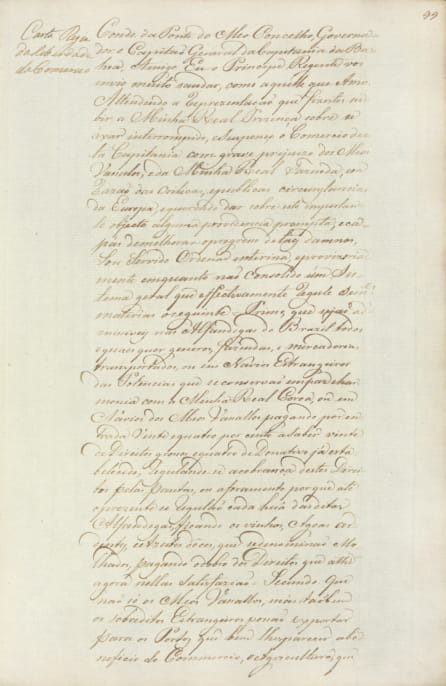 99
Carta Regia
da liberdade
do Comercio
Conde da Ponte do Meo Concelho, Governa-
dor e Capitaõ General da Capitania da Ba-
hia, Amigo. Eu o Principe Regente vos
envio muito saudar, como aquelle que Amo.
Attendendo a Reprezentaçaõ que fizestes su-
bir a Minha Real Prezença sobre se
axar interrompido, e suspenço o Comercio des-
ta Capitania com grave prejuizo dos Meos
Vassalos, e da Minha Real Fazenda, em
razaõ das criticas, e publicas circumstancias
da Europa, e querendo dar sobre este importan-
te objecto alguma providencia prompta, e ca-
pás de melhorar o progreço de taes damnos,
Sou Servido Ordenar interina, e provizoria-
mente emquanto naõ consolido um Sis-
tema geral que effectivamente regule Seme.
materias o seguinte - Primo, que sejaõ ad-
miciveis nas Alfandegas do Brazil todos
e quaes quer generos, fazendas, e mercadorias
transportados, ou em Navios Estrangeiros
das Potencias que se conservaõ em paz e har-
monia com a Minha Real Coroa, ou em
Návios dos Meos Vassallos, pagando por en-
trada vinte e quatro por cento a saber vinte
de Direitos grossos, e quatro de Donativo já esta-
belecido, regulando-se a cobrança destes Direi-
tos pelas pautas, ou aforamento por que até
o prezente se regulaõ cada huã das ditas
Alfandegas, ficando os vinhos, Agoas ar-
dentes, e Azeites doces, que se denominaõ Mo-
lhados, pagando o dobro dos Direitos que athé
agora nellas Satisfaziaõ - Secundo Que
naõ só os Meos Vassallos, mas taõbem
os sobreditos Estrangeiros possaõ exportar
para os Portos, que bem lhes parecer a be-
neficio do Commercio, e Agricultura, que